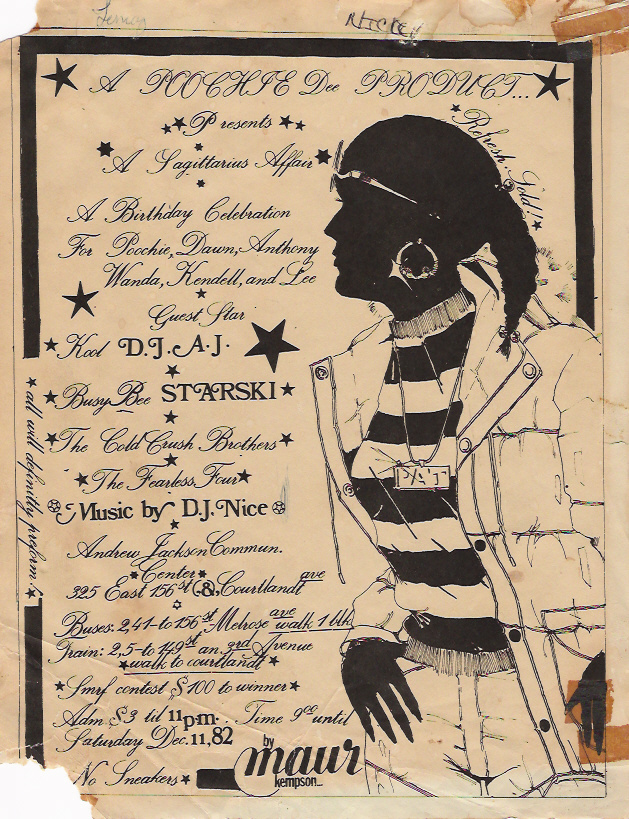 A POOCHIE Dee PRODUCT...
Presents
A Sagittarius Affair
Refresh Gold!
A Birthday Celebration
For Poochie, Dawn, Anthony
Wanda, Kendell, and Lee
Guest Star
Kool D.J. A.J.
Busy Bee STARSKI
The Cold Crush Brothers
The Fearless Four
Music by D.J. Nice
all will definitley preform!
Andrew Jackson Commun.
Center
325 East 156st & Courtlandt ave
Buses: 2,41-to 156st Melrose ave walk 1 blk
Train: 2,5-to 149st an 3rd Avenue
walk to courtlandt
Smrf contest $100 to winner
Adm $3 til 11pm.. Time 9:00 until
Saturday Dec. 11, 82
No Sneakers
by
maur
kempson...